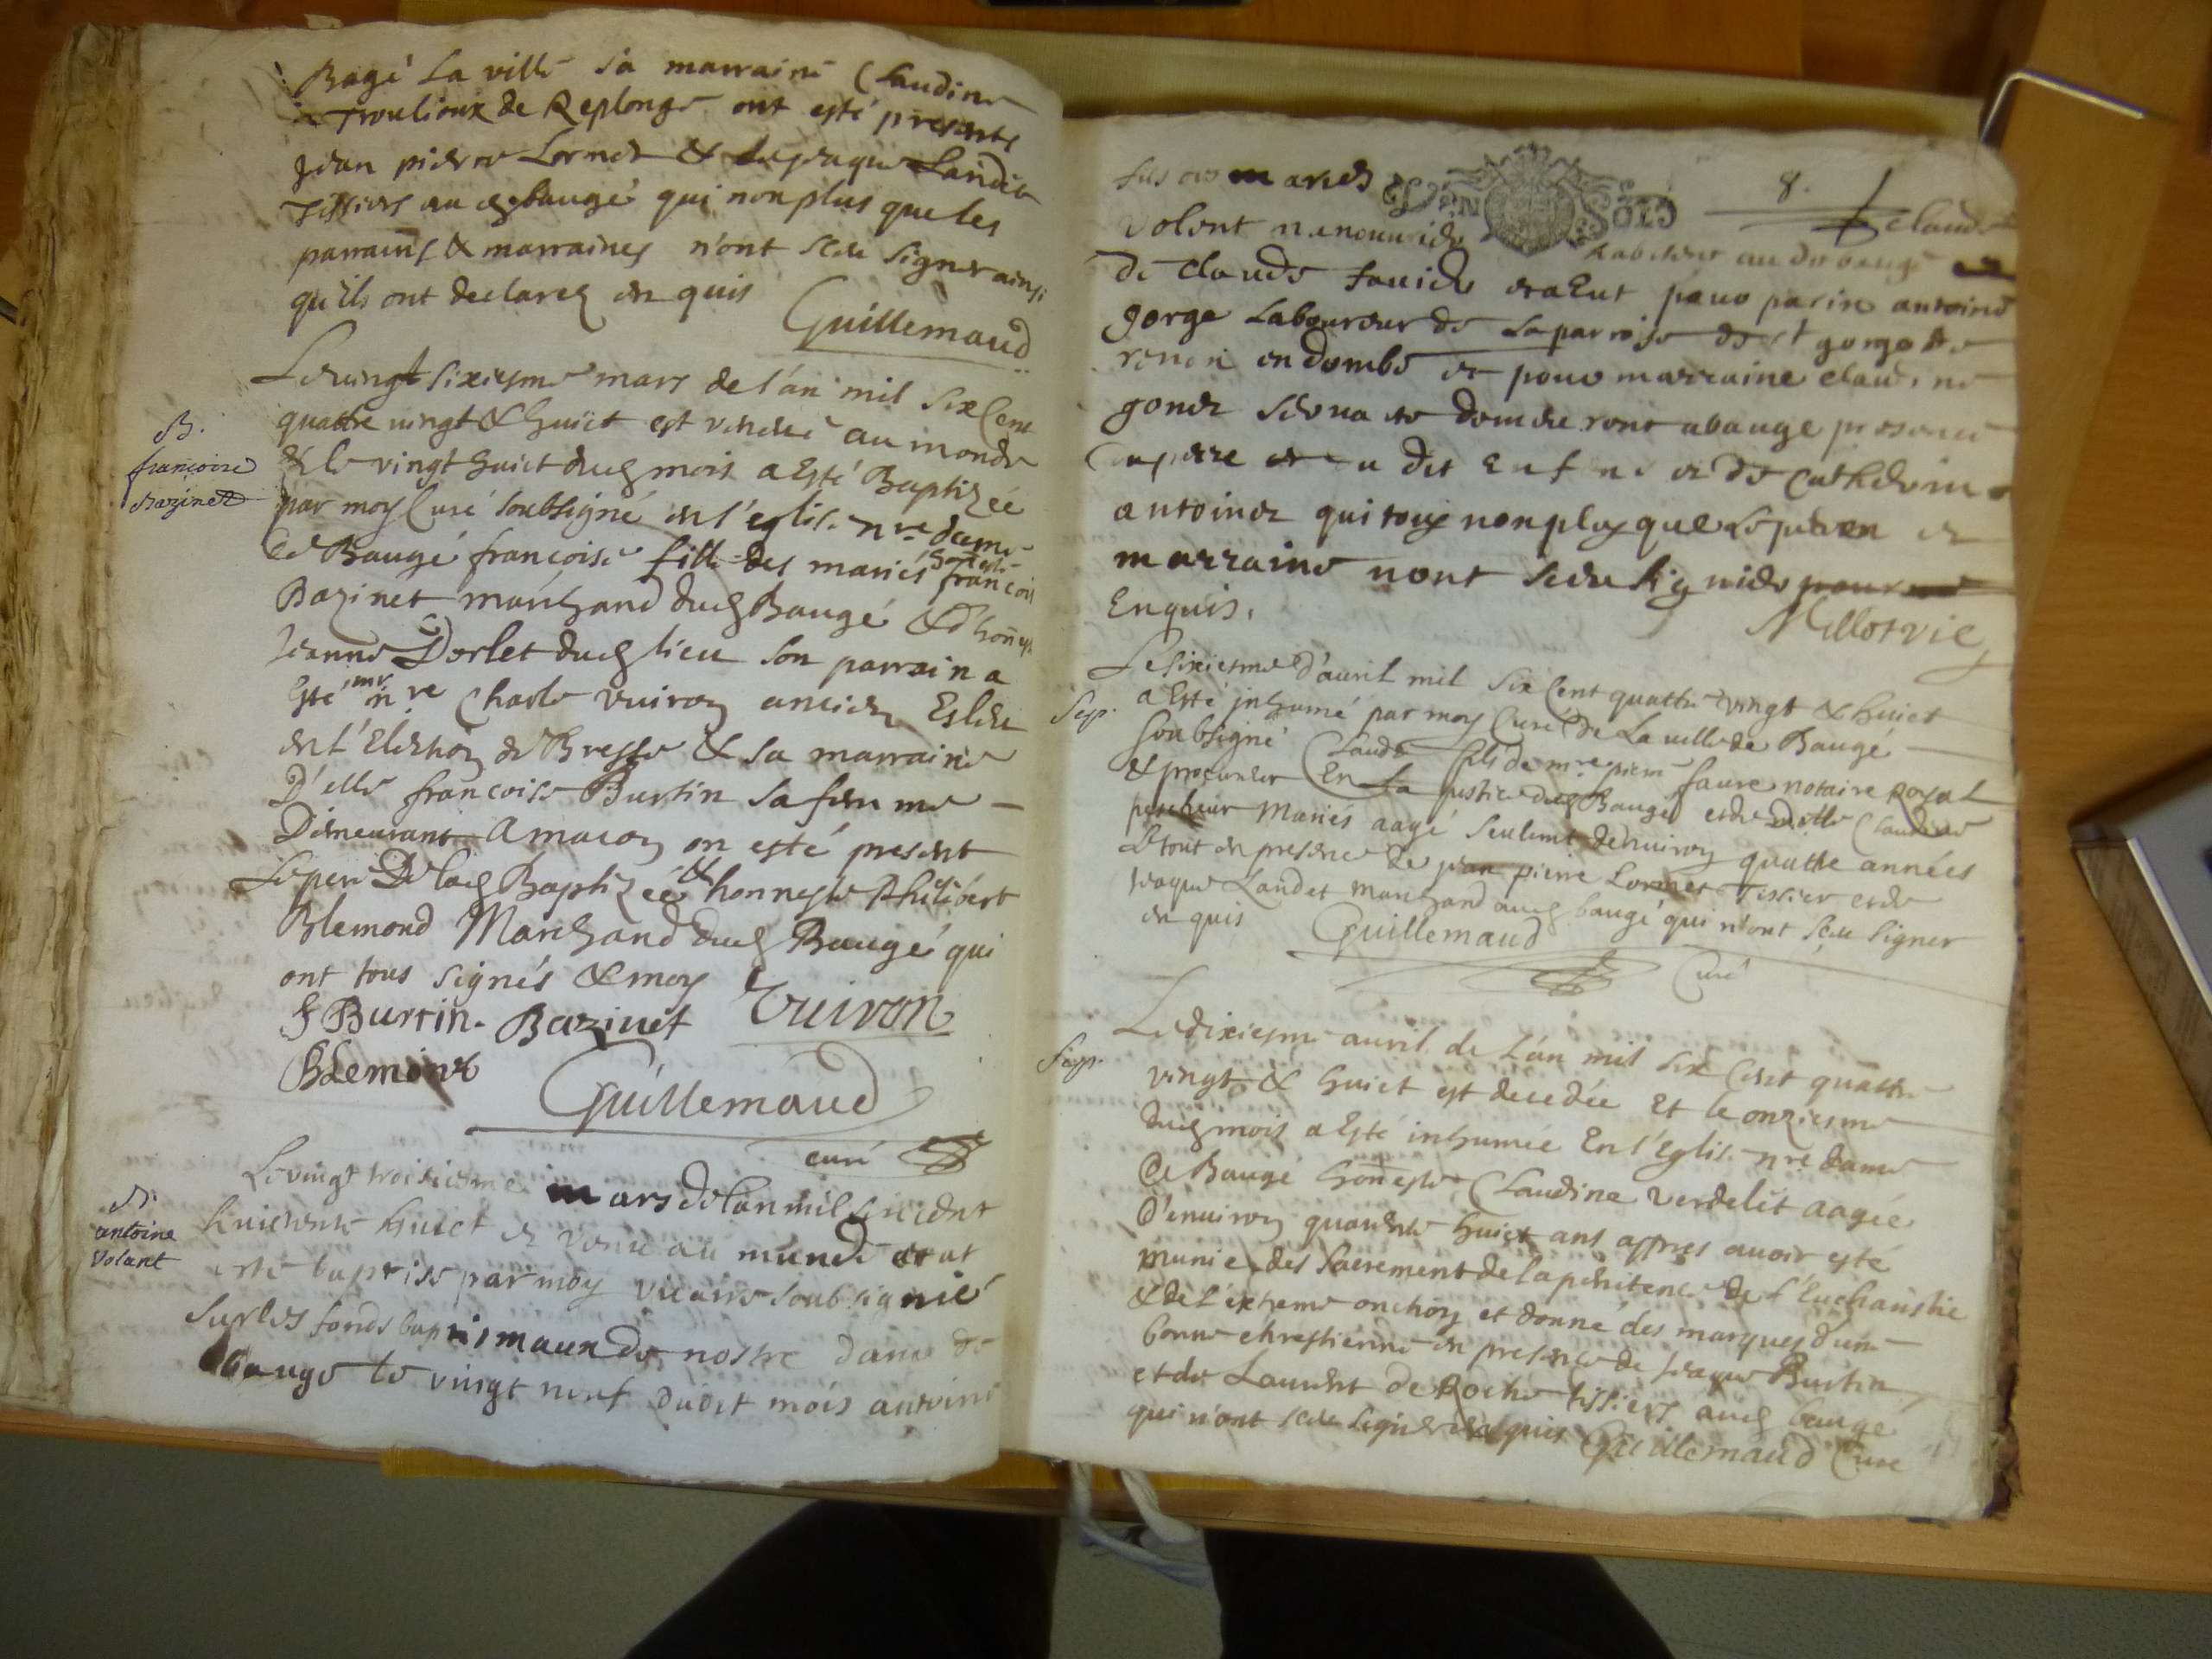 Bagé La ville sa marraine Claudine
Troulioux de Replonge ont esté presents
Jean pierre Lornet & Jacque Landet
Tissiers au dt baugé qui non plus que les
parrains & marraines n'ont sceu signer ainsi
qu'ils ont declarez enquis
Guillemaud
B.
francoise
bazinet
Le vingt sixiesme mars de l'an mil six Cent
quattre vingt & huict est venue au monde
& le vingt huict dud mois a Esté Baptizée
par moy Curé soubsigné en l'eglise nre dame
de Baugé francoise fille des mariés honneste francois
Bazinet marchand dud Baugé & d'honneste
Jeanne Dorlet dud lieu son parrain a
Esté mr mre Charle Vuiron ancien Esleu
en l'Election de Bresse & sa marraine
D'elle francoise Burtin sa femme
Demeurant a macon on esté present
Le pere De lad Baptizée & honneste Philibert
Blemond Marchand dud Baugé qui
ont tous signés & moy
F Burtin. Bazinet Vuiron
BLemond
Guillemaud
curé
B.
antoine
Volant
Le vingt troisiesme mars de lan mil six cent
huictente huict est venu au munde et at
esté baptise par moy vicaire soubsignié
sur les fonds baptismaux de nostre dame de
bauge le vingt neuf dudit mois antoine
8.
fils des maries GEN SOLS claude
Volent habitens au de bauge
de claude favier et at Eut pour parin antoine
gorge Laboureur de la parroise de st gorge de
renon en dombe et pour marraine claudine
gonet servante domeuront a bauge presence
du pere du dit Enfent et de Catherine
antoinet qui tous non plus que le parrin et
marraine nont sceu signier
Enquis.
Millot vic
Sep.
Le sixiesme d'auril mil six Cent quattre vingt & huict
a Esté jnhumé par moy Curé de La ville de Baugé
soubsigné Claude fils de mre pierre faure notaire Royal
& procureur En La justice dud Baugé et de dlle Claudine
pescheur Mariés aagé seulemt d'enuiron quatre années
Le tout en presence de jean pierre Lornet Tissier et de
Jeaque Landet marchand aud baugé qui n'ont sceu signer
enquis
Guillemaud
Curé
Sep.
Le dixiesme auril de L'an mil six Cent quattre
vingt & huict est decedée Et le onziesme
dud mois a Esté inhumée En l'Eglise nre dame
de Baugé honneste Claudine Verdelet aagée
d'enuiron quarente huict ans appres auoir esté
munie des sacrement de la penitence de l'Eucharistie
& de l'extreme onction et donné des marques d'une
bonne chrestienne en presence de Jeaque Burtin
et de Laurent de Roche tissiers aud bauge
qui n'ont sceu signer enquis Guillemaud Curé